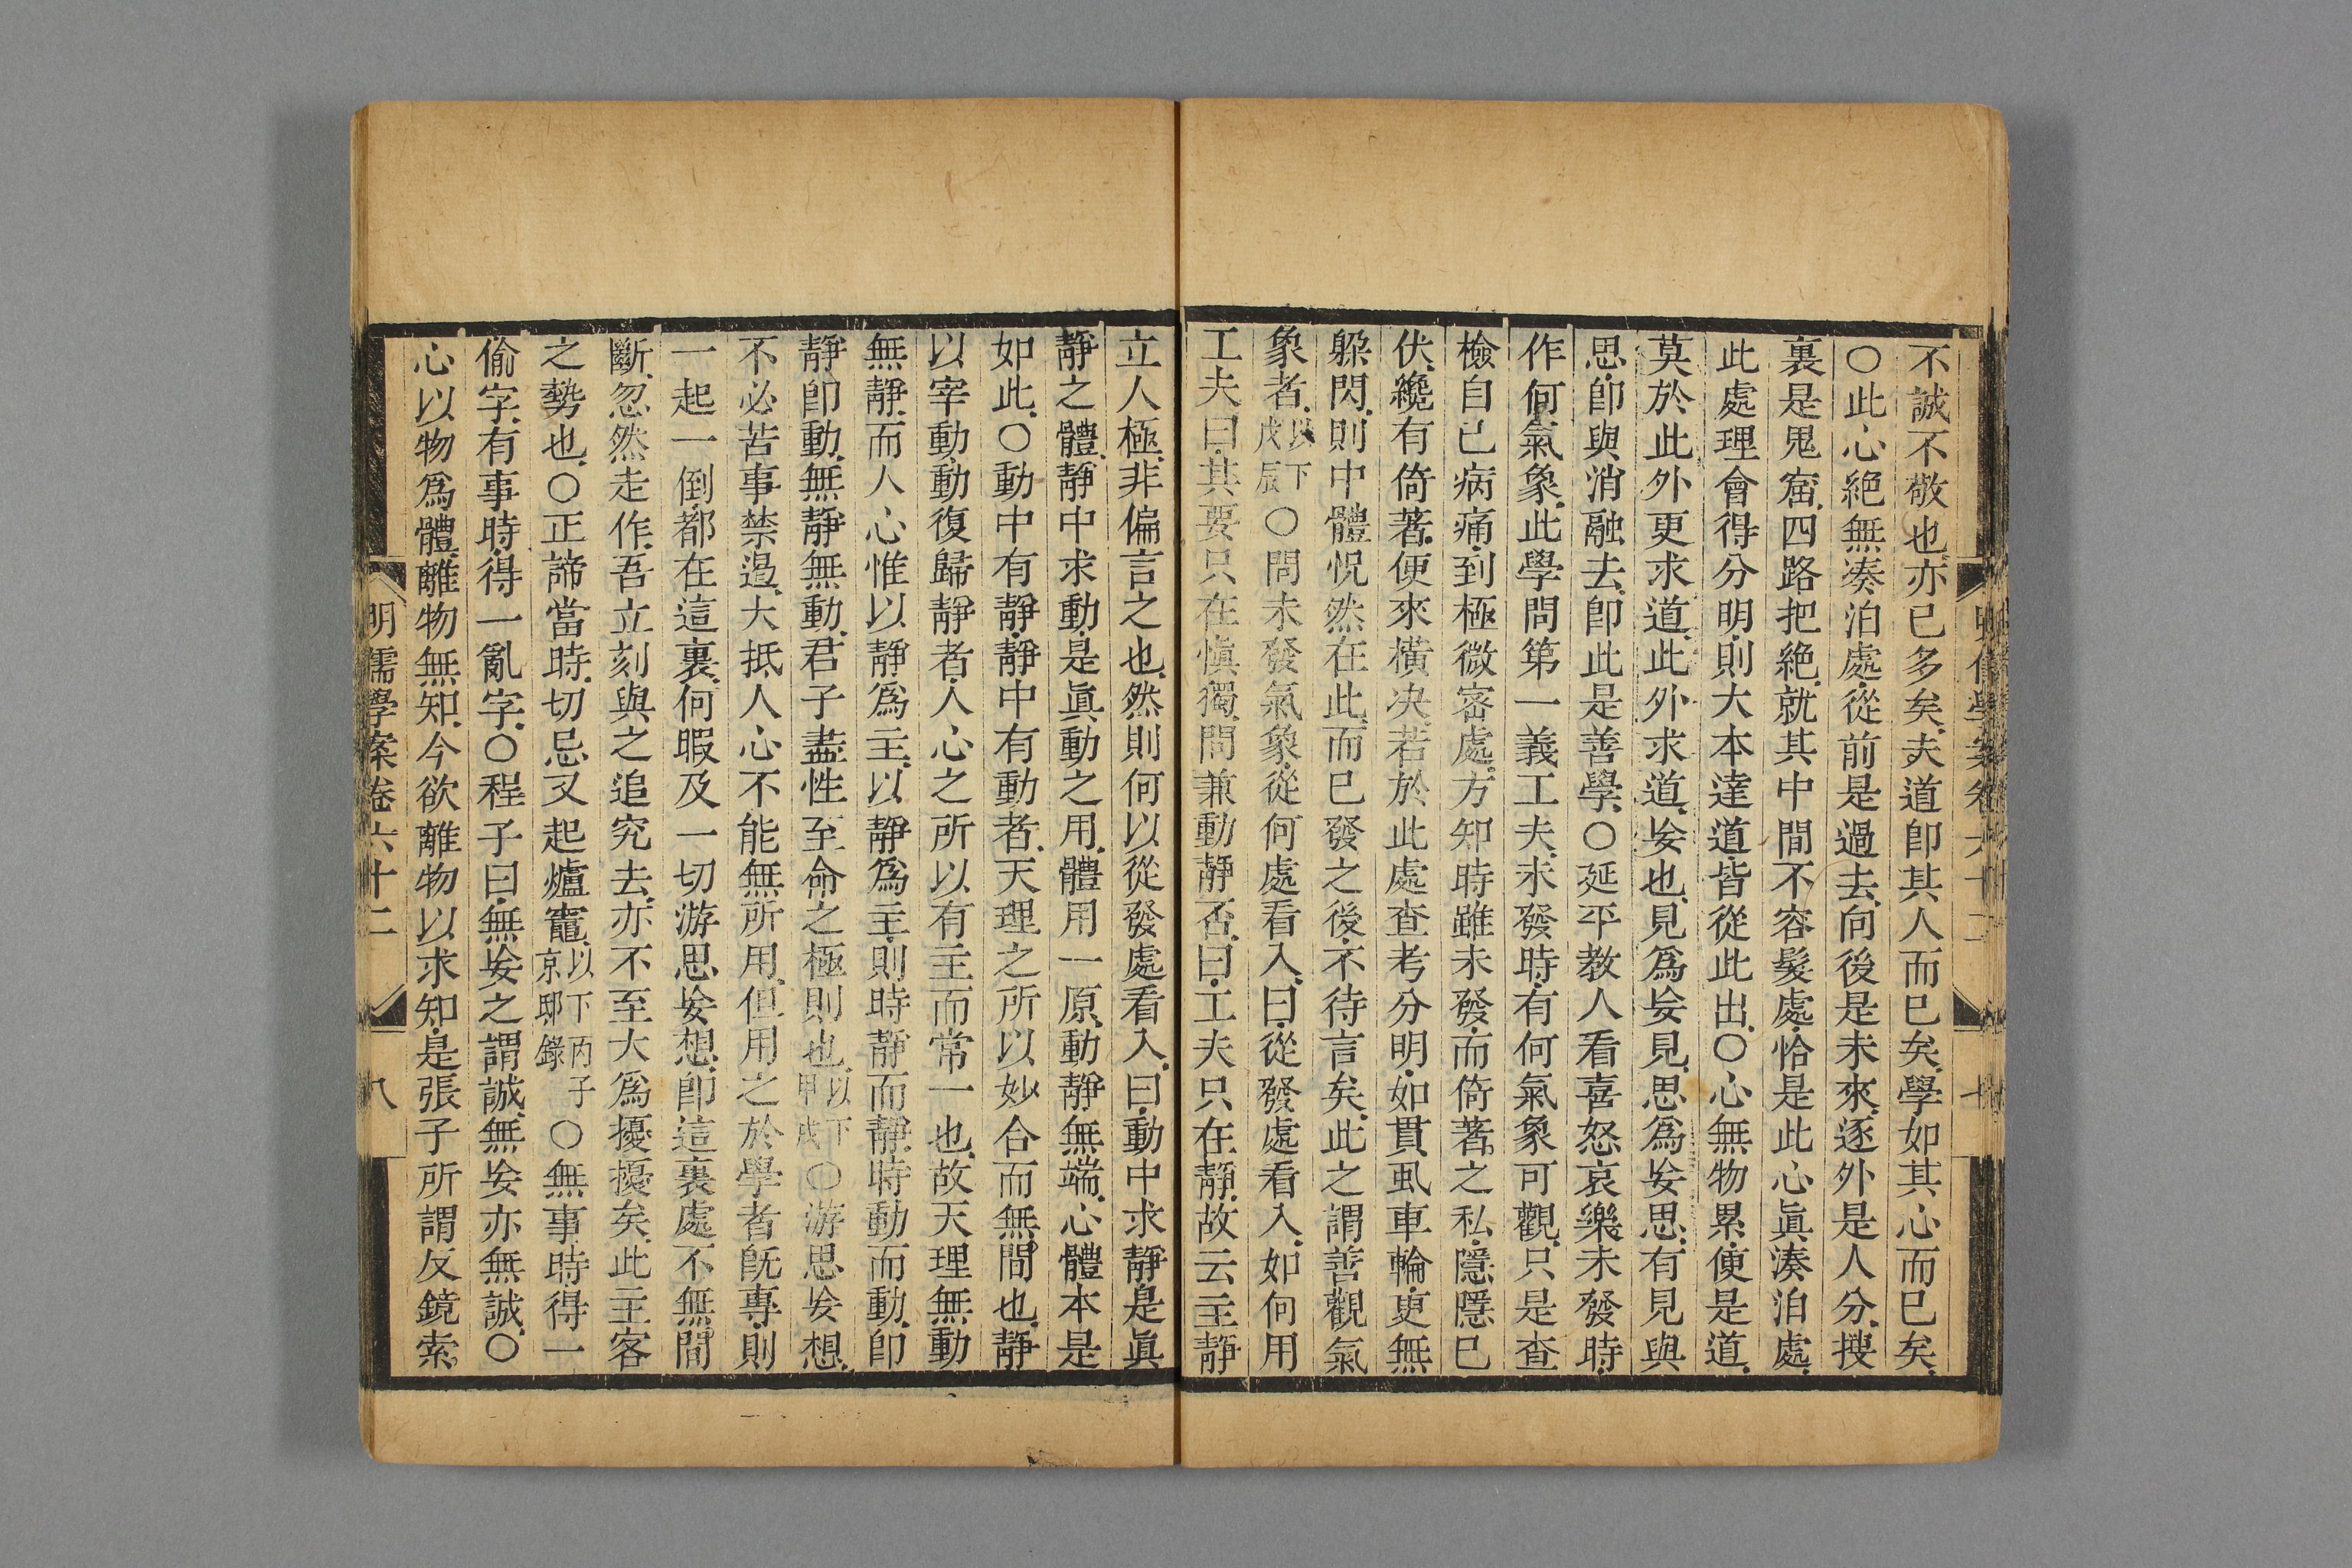 不誠不敬也亦已多矣夫道即其人而已矣學如其心而已矣
○此心絶無湊泊處從前是過去向後是未來逐外是人分搜
裏是鬼窟四路把絶就其中間不容髮處恰是此心眞湊泊處
此處理會得分明則大本達道皆從此出○心無物累便是道
莫於此外更求道此外求道妄也見爲妄見思爲妄思有見與
思即與消融去即此是善學○延平教人看喜怒哀樂未發時
作何氣象此學問第一義工夫未發時有何氣象可觀只是查
檢自己病痛到極微密處方知時雖未發而倚著之私隱隱已
伏纔有倚著便來橫决若於此處查考分明如貫虱車輪更無
躱閃則中體怳然在此而已發之後不待言矣此之謂善觀氣
象者以下戊辰○問未發氣象從何處看入曰從發處看入如何用
工夫曰其要只在愼獨問兼動靜否曰工夫只在靜故云主靜
立人極非偏言之也然則何以從發處看入曰動中求靜是眞
靜之體靜中求動是眞動之用體用一原動靜無端心體本是
如此○動中有靜靜中有動者天理之所以妙合而無間也靜
以宰動動復歸靜者人心之所以有主而常一也故天理無動
無靜而人心惟以靜爲主以靜爲主則時靜而靜時動而動即
靜即動無靜無動君子盡性至命之極則也以下甲戌○游思妄想
不必苦事禁遏大抵人心不能無所用但用之於學者旣專則
一起一倒都在這裏何暇及一切游思妄想即這裏處不無間
斷忽然走作吾立刻與之追究去亦不至大爲擾擾矣此主客
之勢也○正諦當時切忌又起爐竈以下丙子京邸錄○無事時得一
偷字有事時得一亂字○程子曰無妄之謂誠無妄亦無誠○
心以物爲體離物無知今欲離物以求知是張子所謂反鏡索
明儒學案卷六十二　八